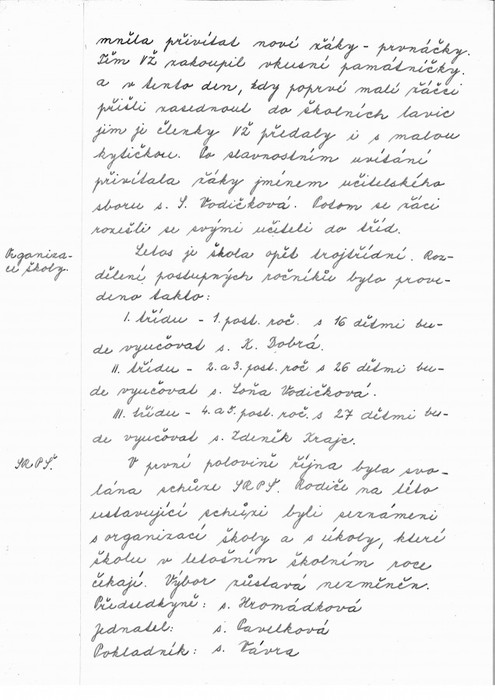 mněla přivítat nové žáky - prvnáčky.
Těm VŽ zakoupil vkusné památníčky.
a v tento den, kdy poprvé malí žáčci
přišli zasednout do školních lavic
jim je členky VŽ předaly i s malou
kytičkou. Po slavnostním uvítání
přivítala žáky jménem učitelského
sboru s. S. Vodičková. Potom se žáci
rozešli se svými učiteli do tříd.
Organiza-
ce školy.
Letos je škola opět trojtřídní. Roz-
dělení postupných ročníků bylo prove-
deno takto:
I. třídu - 1. post. roč. s 16 dětmi bu-
de vyučovat s. K. Dobrá.
II. třídu - 2. a 3. post. roč s 26 dětmi bu-
de vyučovat s. Soňa Vodičková.
III. třídu - 4. a 5. post. roč. s 27 dětmi bu-
de vyučovat s. Zdeněk Krajc.
SRPŠ.
V první polovině října byla svo-
lána schůze SRPŠ. Rodiče na této
ustavující schůzi byli seznámeni
s organizací školy a s úkoly, které
školu v letošním školním roce
čekají. Výbor zůstává nezměněn.
Předsedkyně: s. Hromádková
Jednatel: s. Pavelková
Pokladník: s. Vávra